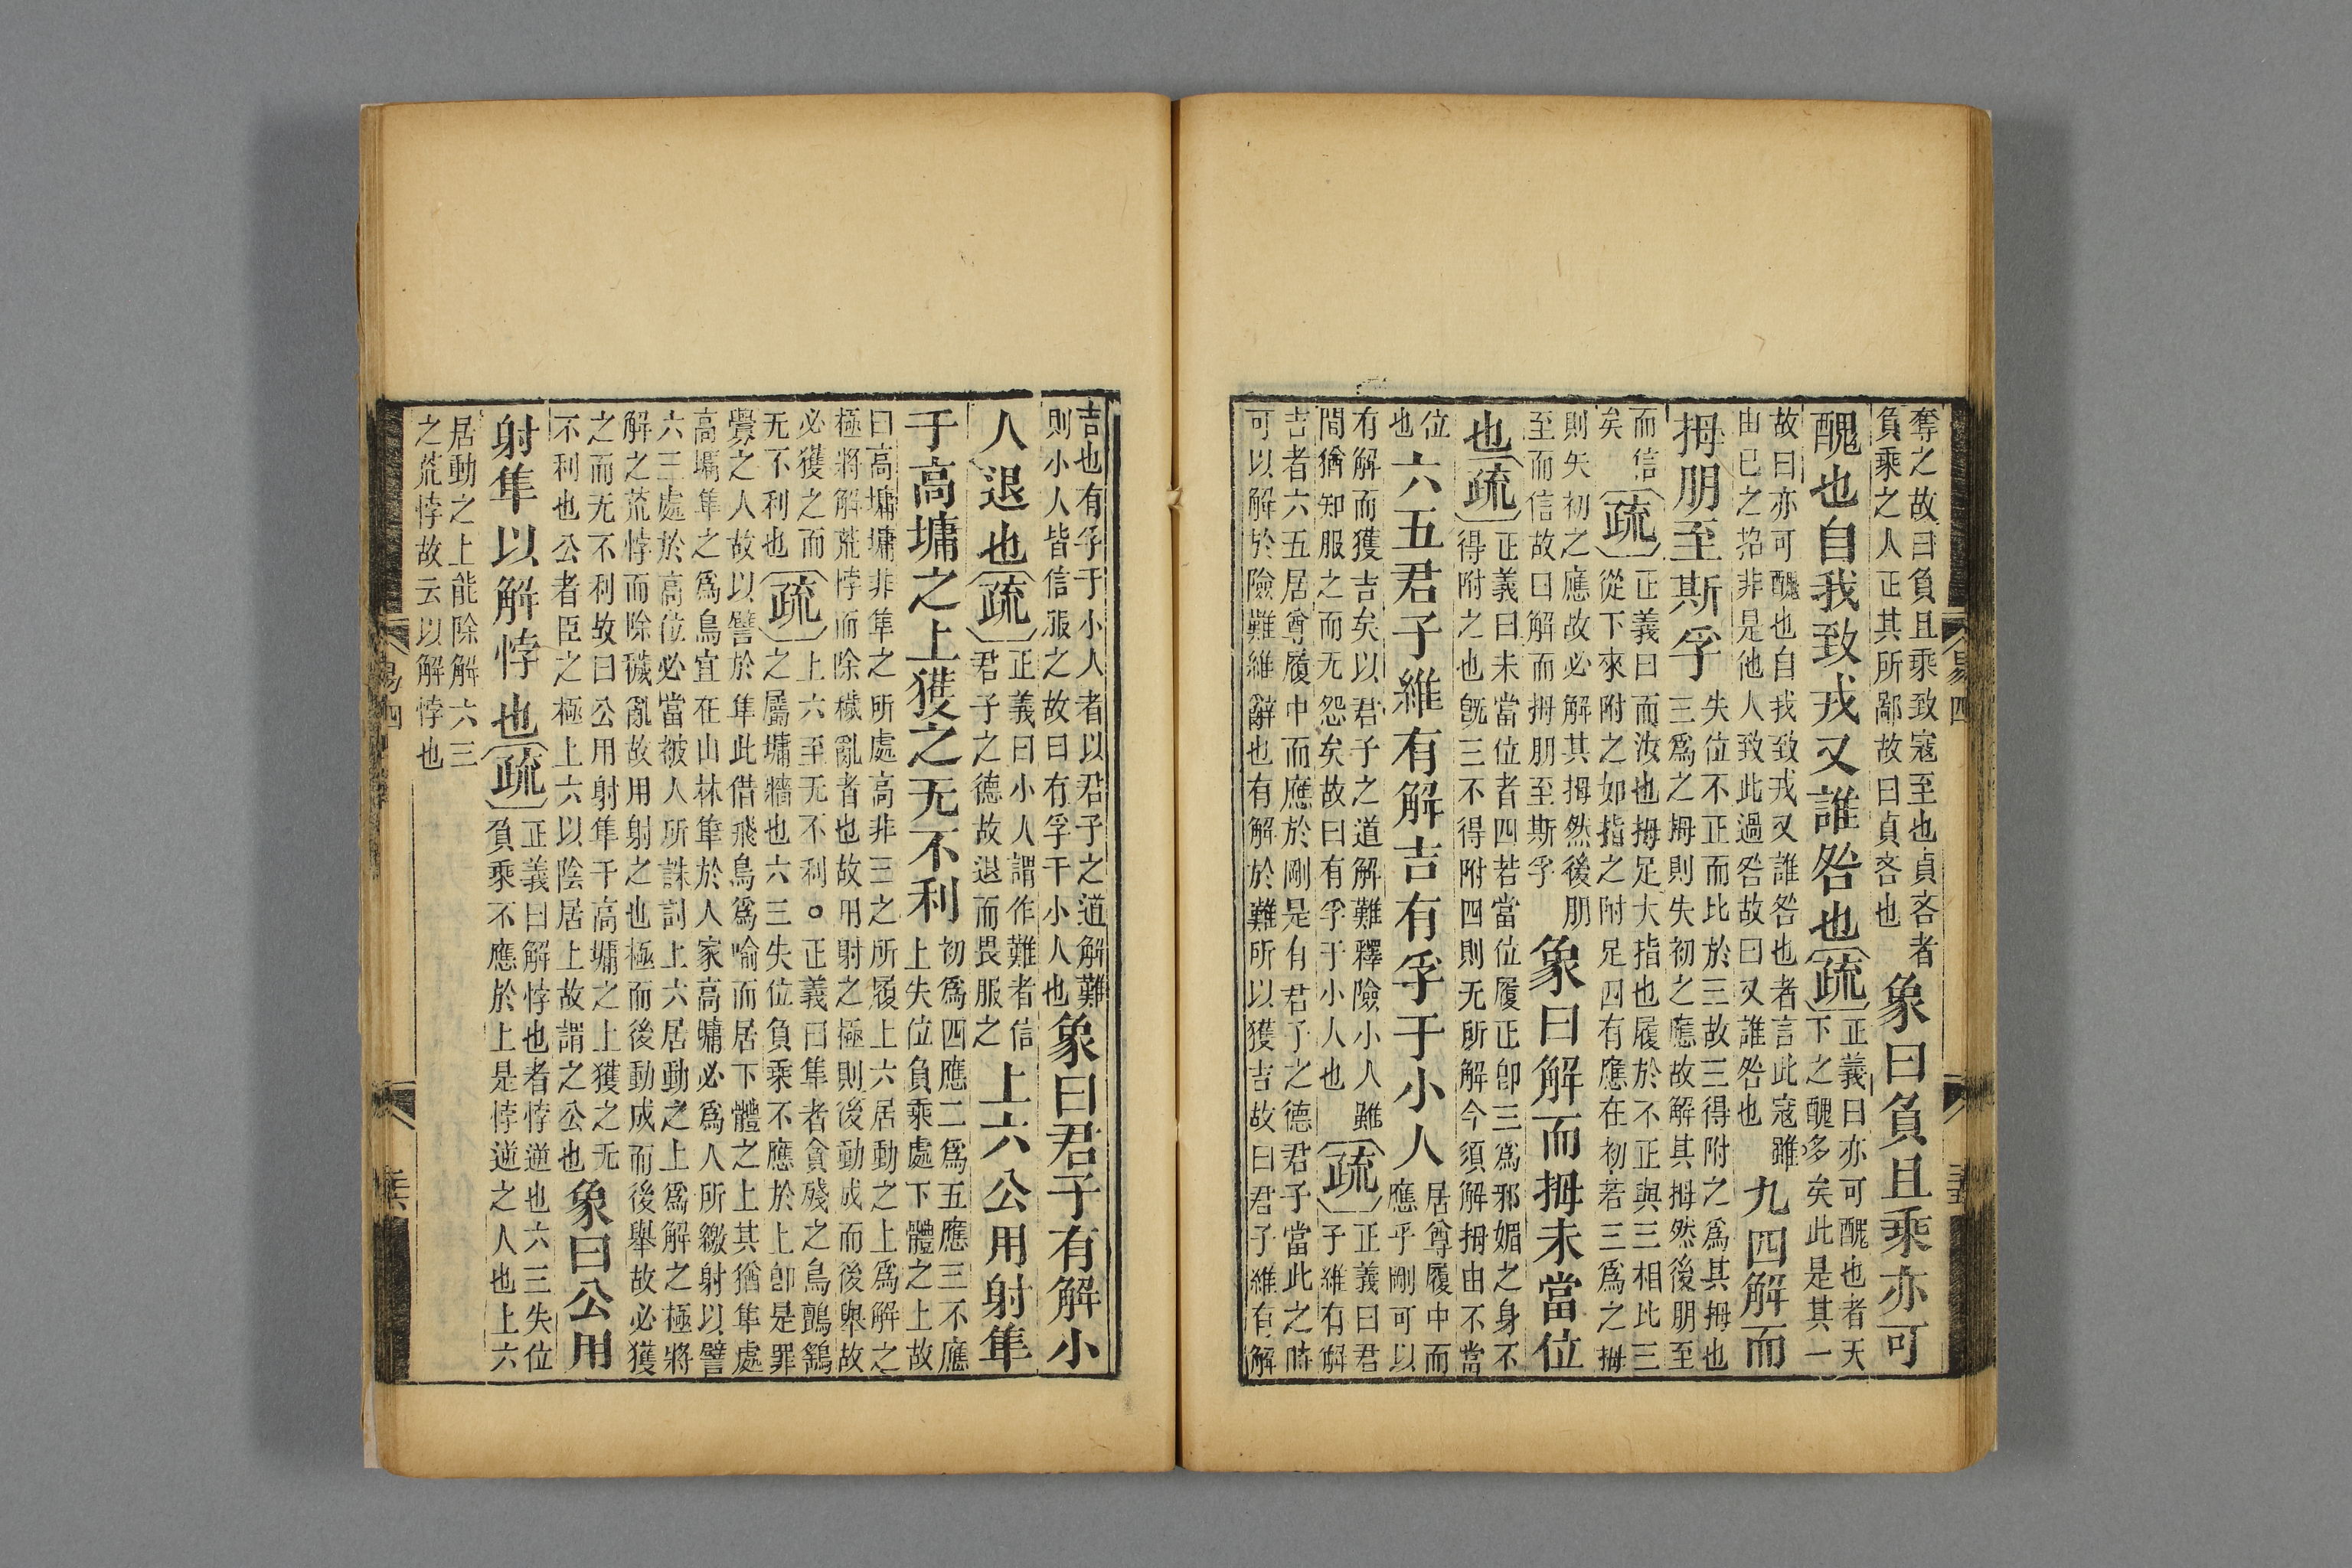 奪之故曰負且乘致寇至也貞吝者
負乘之人正其所鄙故曰貞吝也
象曰負且乘亦可
醜也自我致戎又誰咎也疏
正義曰亦可醜也者天
下之醜多矣此是其一
故曰亦可醜也自我致戎又誰咎也者言此寇雖
由已之招非是他人致此過咎故曰又誰咎也
九四解而
拇朋至斯孚
失位不正而比於三故三得附之爲其拇也
三爲之拇則失初之應故解其拇然後朋至
而信
矣
疏
正義曰而汝也拇足大指也履於不正與三相比三
從下來附之如指之附足四有應在初若三爲之拇
則失初之應故必解其拇然後朋
至而信故曰解而拇朋至斯孚
象曰解而拇未當位
也疏
正義曰未當位者四若當位履正卽三爲邪媚之身不
得附之也旣三不得附四則无所解今須解拇由不當
位
也
六五君子維有解吉有孚于小人
居尊履中而
應乎剛可以
有解而獲吉矣以君子之道解難釋險小人雖
間猶知服之而无怨矣故曰有孚于小人也
疏
正義曰君
子維有解
吉者六五居尊履中而應於剛是有君子之德君子當此之時
可以解於險難維辭也有解於難所以獲吉故曰君子維有解
易四
吉也有孚于小人者以君子之道解難
則小人皆信服之故曰有孚于小人也
象曰君子有解小
人退也疏
正義曰小人謂作難者信
君子之德故退而畏服之
上六公用射隼
于高墉之上獲之无不利
初爲四應二爲五應三不應
上失位負乘處下體之上故
曰高墉墉非隼之所處高非三之所履上六居動之上爲解之
極將解荒悖而除穢亂者也故用射之極則後動成而後舉故
必獲之而
无不利也
疏
上六至无不利○正義曰隼者貪殘之鳥鸇鷂
之屬墉牆也六三失位負乘不應於上卽是罪
釁之人故以譬於隼此借飛鳥爲喻而居下體之上其猶隼處
高墉隼之爲鳥宜在山林隼於人家高墉必爲人所繳射以譬
六三處於高位必當被人所誅討上六居動之上爲解之極將
解之荒悖而除穢亂故用射之也極而後動成而後舉故必獲
之而无不利故曰公用射隼于高墉之上獲之无
不利也公者臣之極上六以陰居上故謂之公也
象曰公用
射隼以解悖也疏
正義曰解悖也者悖逆也六三失位
負乘不應於上是悖逆之人也上六
居動之上能除解六三
之荒悖故云以解悖也
易四